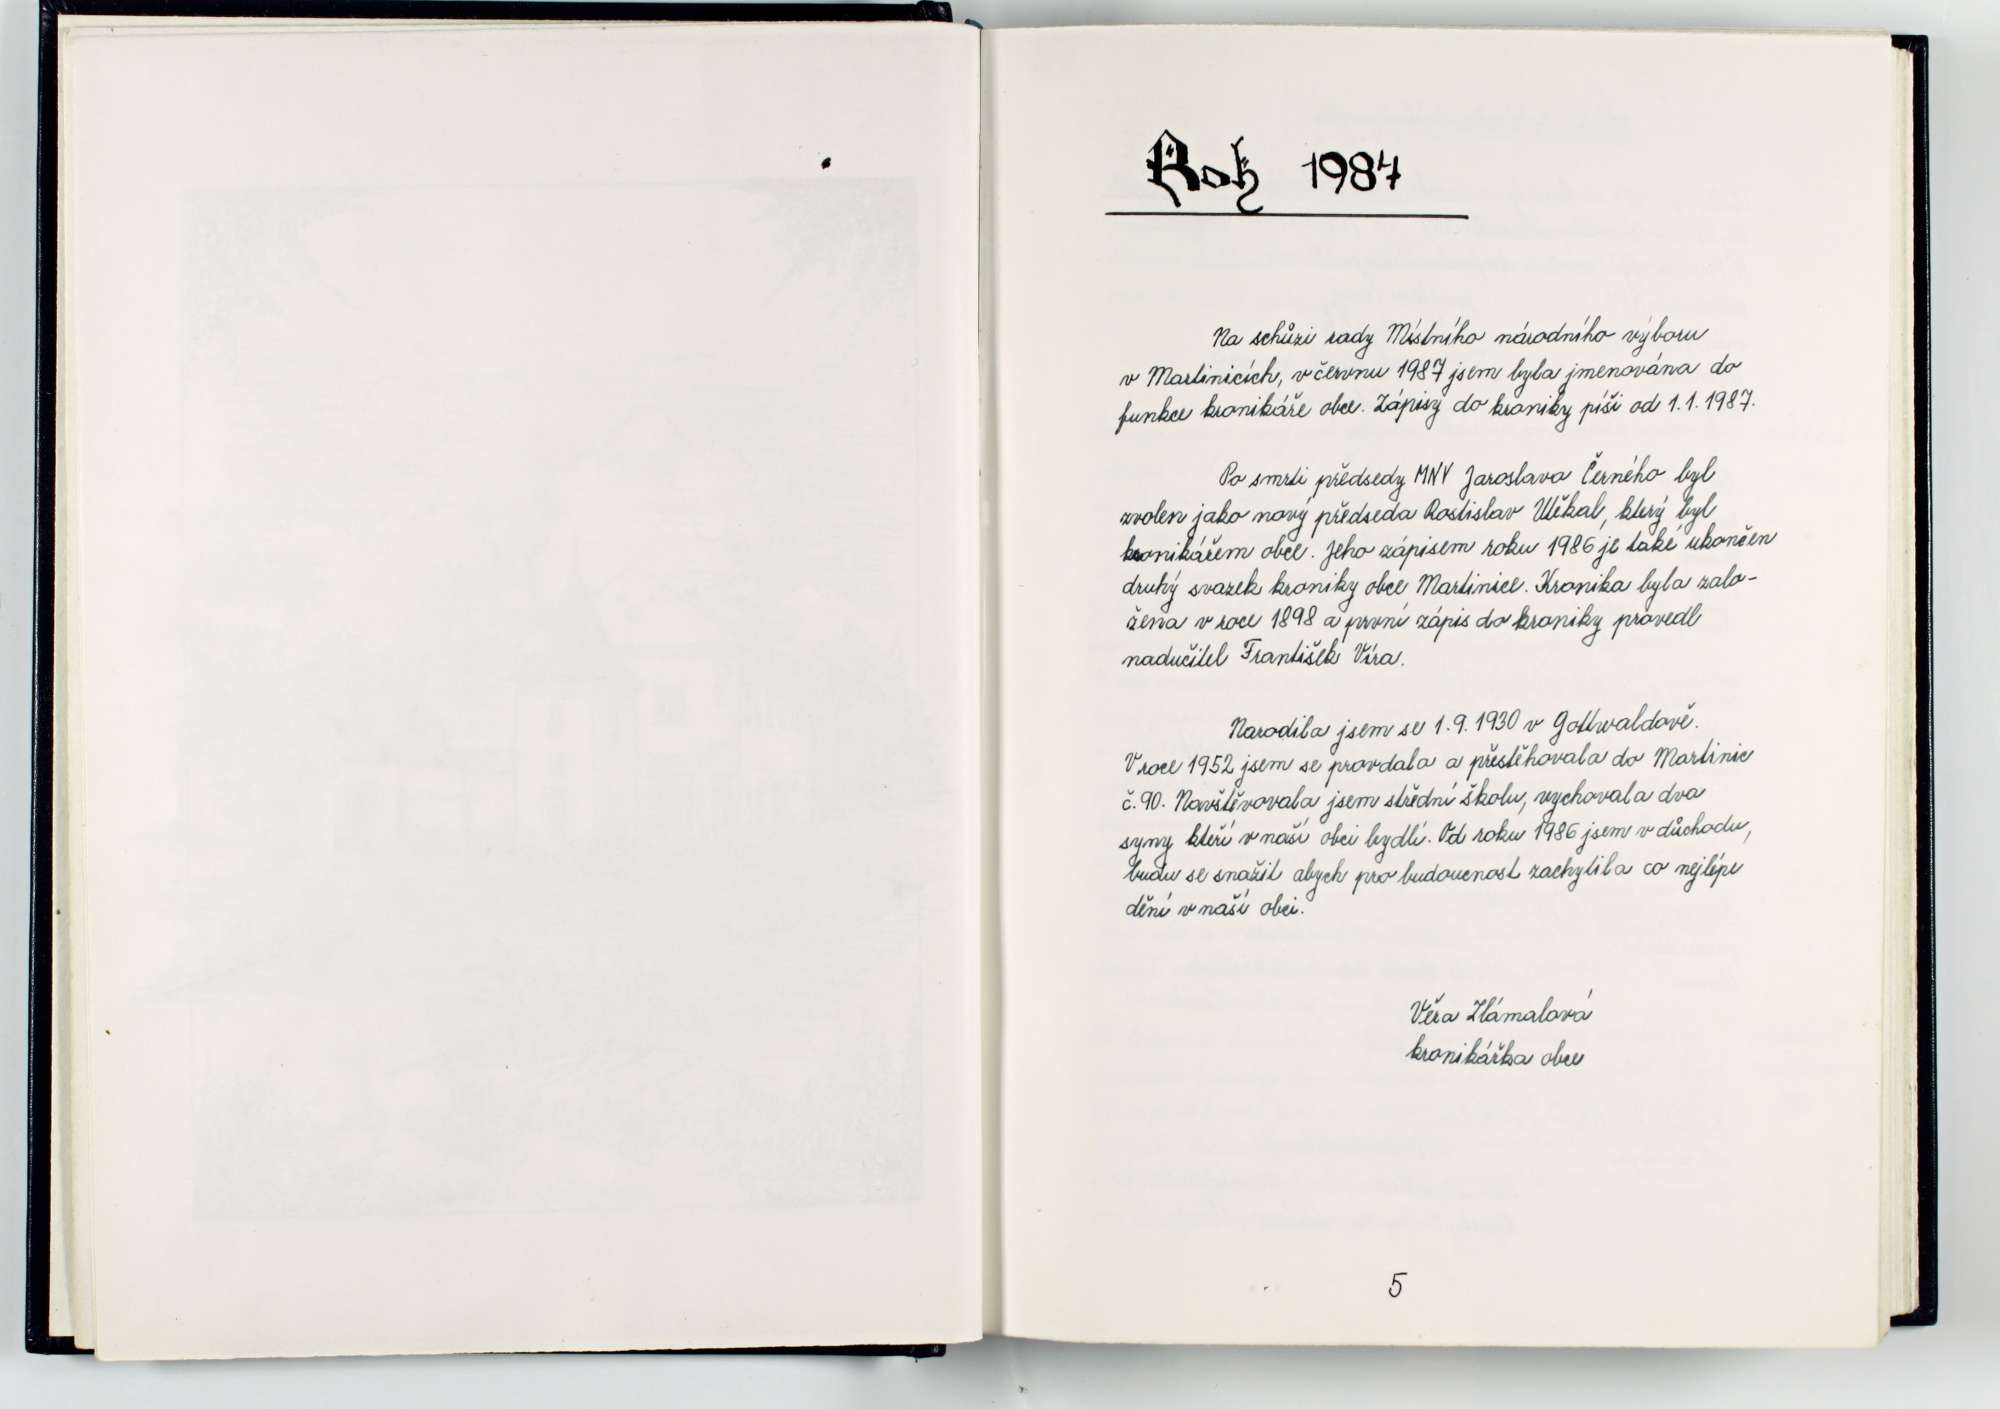 Rok 1987
Na schůzi rady Místního národního výboru
v Martinicích, v červnu 1987 jsem byla jmenována do
funkce kronikáře obce. Zápisy do kroniky píši od 1.1.1987.
Po smrti předsedy MNV Jaroslava Černého byl
zvolen jako nový předseda Rostislav Utěkal, který byl
kronikářem obce. Jeho zápisem roku 1986 je také ukončen
druhý svazek kroniky obce Martinice. Kronika byla zalo-
žena v roce 1898 a první zápis do kroniky provedl
nadučitel František Víra.
Narodila jsem se 1.9.1930 v Gottwaldově.
V roce 1952 jsem se provdala a přestěhovala do Martinic
č. 90. Navštěvovala jsem střední školu, vychovala dva
syny kteří v naší obci bydlí. Od roku 1986 jsem v důchodu,
budu se snažit abych pro budoucnost zachytila co nejlépe
dění v naší obci.
Věra Zlámalová
kronikářka obce
5